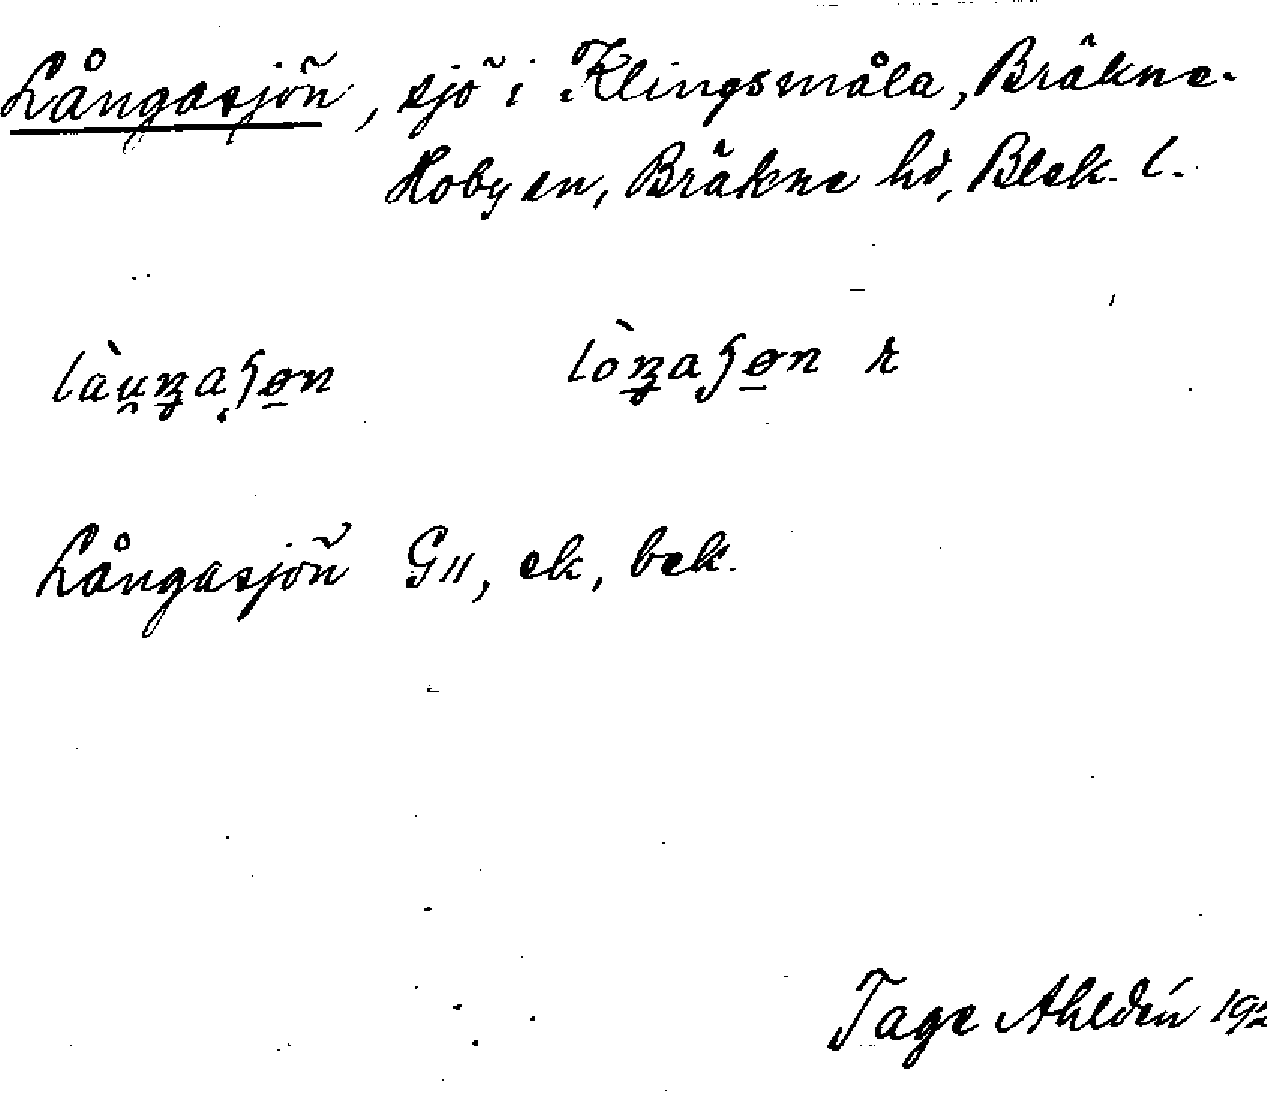 Långasjön, sjö i Klingsmåla, Bräkne-
Hoby sn, Bräkne hd, Blek. l.
Långasjön G11, ek, bek.
Tage Ahldén 192